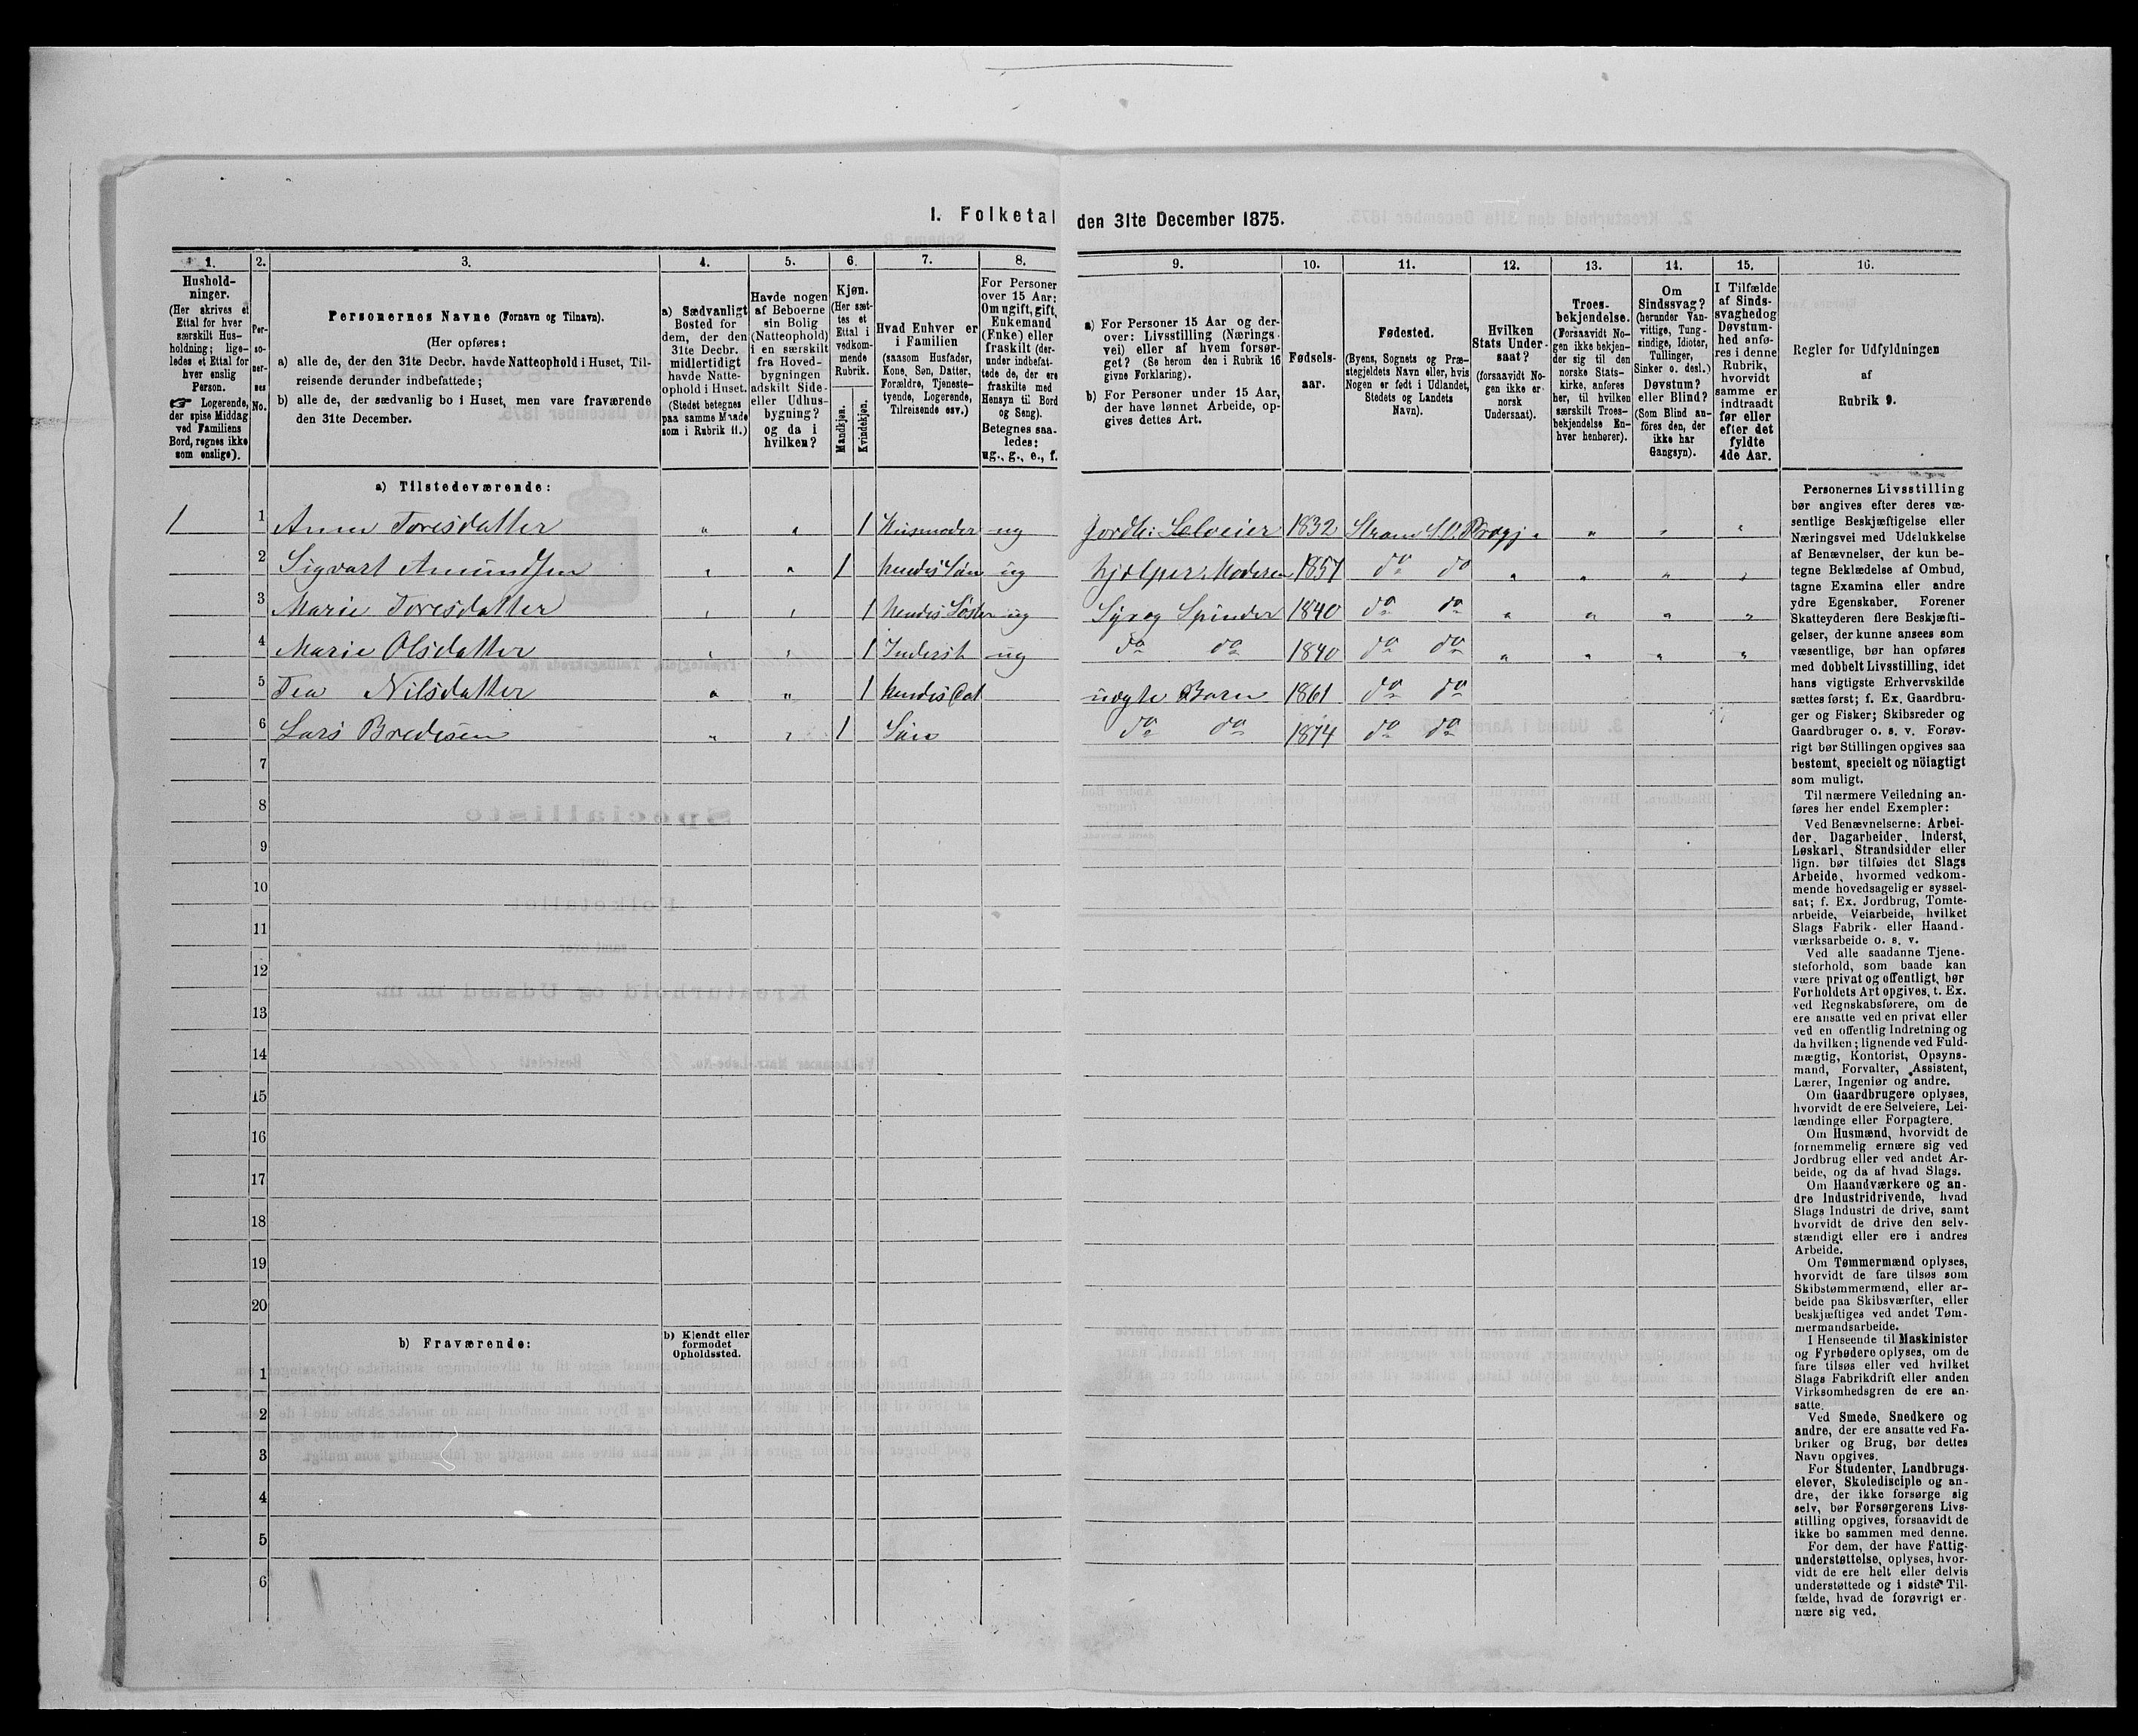 I. Folketal den 31te December 1875.
1. 2. 3. 4. 5. 6. 7. 8. 9. 10. 11. 12. 13. 14. 15. 16.
Hushold-
ninger.
(Her skrives et
Ettal for hver
særskilt Hus-
holdning; lige-
ledes et Ettal for
hver enslig
Person.
☞ Logerende,
der spise Middag
ved Familiens
Bord, regnes ikke
som enslige).
Per-
so-
ner-
nes
No.
Personernes Navne (Fornavn og Tilnavn).
(Her opføres:
a) alle de, der den 31te Decbr. havde Natteophold i Huset, Til-
reisende derunder indbefattede;
b) alle de, der sædvanlig bo i Huset, men vare fraværende
den 31te December.
a) Sædvanligt
Bosted for
dem, der den
31te Decbr.
midlertidigt
havde Natte-
ophold i Huset.
(Stedet betegnes
paa samme Maade
som i Rubrik 11.)
Havde nogen
af Beboerne
sin Bolig
(Natteophold)
i en særskilt
fra Hoved-
bygningen
adskilt Side-
eller Udhus-
bygning?
og da i
hvilken?
Kjøn.
(Her sæt-
tes et
Ettal i
vedkom-
mende
Rubrik.
Mandkjøn.
Kvindekjøn.
Hvad Enhver er
i Familien
(saasom Husfader,
Kone, Søn, Datter,
Forældre, Tjeneste-
tyende, Logerende,
Tilreisende osv.)
For Personer
over 15 Aar:
Om ugift, gift,
Enkemand
(Enke) eller
fraskilt (der-
under indbefat-
tede de, der ere
fraskilte med
Hensyn til Bord
og Seng).
Betegnes saa-
ledes:
ug., g., e., f.
a) For Personer 15 Aar og der-
over: Livsstilling (Nærings-
vei) eller af hvem forsør-
get? (Se herom den i Rubrik 16
givne Forklaring).
b) For Personer under 15 Aar,
der have lønnet Arbeide, op-
gives dettes Art.
Fødsels-
aar.
Fødested.
(Byens, Sognets og Præ-
stegjeldets Navn eller, hvis
Nogen er født i Udlandet,
Stedets og Landets
Navn).
Hvilken
Stats Under-
saat?
(forsaavidt No-
gen ikke er
norsk
Undersaat).
Troes-
bekjendelse.
(Forsaavidt No-
gen ikke bekjen-
der sig til den
norske Stats-
kirke, anføres
her, til hvilken
særskilt Troes-
bekjendelse En-
hver henhører).
Om
Sindssvag?
(herunder Van-
vittige, Tung-
sindige, Idioter,
Tullinger,
Sinker o. desl.)
Døvstum?
eller Blind?
(Som Blind an-
føres den, der
ikke har
Gangsyn).
I Tilfælde
af Sinds-
svaghed og
Døvstum-
hed anfø-
res i denne
Rubrik,
hvorvidt
samme er
indtraadt
før eller
efter det
fyldte
4de Aar.
Regler for Udfyldningen
af
Rubrik 9.
a) Tilstedeværende:
1 1 Anne Toresdatter " " 1 Husmoder ug Jordbr: Selveier 1832 Strand " " " "
2 Sigvart Amundsen " " 1 hendes Søn ug hjelper Moderen 1857 do do " " " "
3 Marie Toresdatter " " 1 hendes Søster ug Sy og Spinder 1840 do do " " " "
4 Marie Olsdatter " " 1 Inderst ug do do 1840 do do " " " "
5 Tea Nilsdatter " " 1 hendes Dat uægte Barn 1861 do do
6 Lars Bredesen " " 1 Søn do do 1874 do do
7
8
9
10
11
12
13
14
15
16
17
18
19
20
b) Fraværende:
b) Kjendt eller
formodet
Opholdssted.
1
2
3
4
5
6
Personernes Livsstilling
bør angives efter deres væ-
sentlige Beskjæftigelse eller
Næringsvei med Udelukkelse
af Benævnelser, der kun be-
tegne Beklædelse af Ombud,
tagne Examina eller andre
ydre Egenskaber. Forener
Skatteyderen flere Beskjæfti-
gelser, der kunne ansees som
væsentlige, bør han opføres
med dobbelt Livsstilling, idet
hans vigtigste Erhvervskilde
sættes først; f. Ex. Gaardbru-
ger og Fisker; Skibsreder og
Gaardbruger o. s. v. Forøv-
rigt bør Stillingen opgives saa
bestemt, specielt og nöiagtigt
som muligt.
Til nærmere Veiledning an-
føres her endel Exempler:
Ved Benævnelserne: Arbei-
der, Dagarbeider, Inderst,
Løskarl, Strandsidder eller
lign. bør tilføies det Slags
Arbeide, hvormed vedkom-
mende hovedsagelig er syssel-
sat; f. Ex. Jordbrug, Tomte-
arbeide, Veiarbeide, hvilket
Slags Fabrik- eller Haand-
værksarbeide o. s. v.
Ved alle saadanne Tjene-
steforhold, som baade kan
være privat og offentligt, bør
Forholdets Art opgives, t. Ex.
ved Regnskabsførere, om de
ere ansatte ved en privat eller
ved en offentlig Indretning og
da hvilken; lignende ved Fuld-
mægtig, Kontorist, Opsyns-
mand, Forvalter, Assistent,
Lærer, Ingeniør og andre.
Om Gaardbrugere oplyses,
hvorvidt de ere Selveiere, Lei-
lændinge eller Forpagtere.
Om Husmænd, hvorvidt de
fornemmelig ernære sig ved
Jordbrug eller ved andet Ar-
beide, og da af hvad Slags.
Om Haandværkere og an-
dre Industridrivende, hvad
Slags Industri de drive, samt
hvorvidt de drive den selv-
stændigt eller ere i andres
Arbeide.
Om Tømmermænd oplyses,
hvorvidt de fare tilsøs som
Skibstømmermænd, eller ar-
beide paa Skibsværfter, eller
beskjæftiges ved andet Tøm-
mermandsarbeide.
I Henseende til Maskinister
og Fyrbødere oplyses, om de
fare tilsøs eller ved hvilket
Slags Fabrikdrift eller anden
Virksomhedsgren de ere an-
satte.
Ved Smede, Snedkere og
andre, der ere ansatte ved Fa-
briker og Brug, bør dettes
Navn opgives.
For Studenter, Landbrugs-
elever, Skoledisciple og an-
dre, der ikke forsørge sig
selv, bør Forsørgerens Livs-
stilling opgives, forsaavidt de
ikke bo sammen med denne.
For dem, der have Fattig-
understøttelse, oplyses, hvor-
vidt de ere helt eller delvis
understøttede og i sidste Til-
fælde, hvad de forøvrigt er-
nære sig ved.